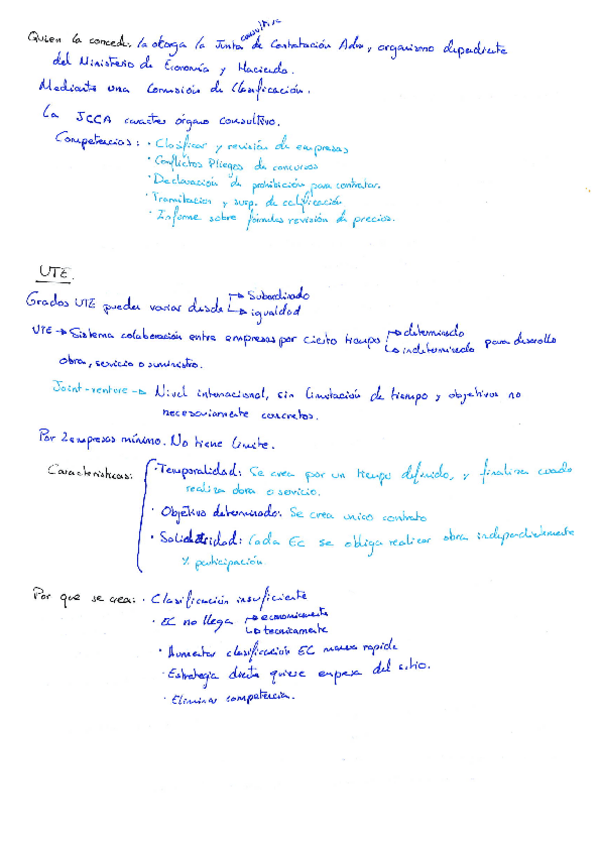 Quien la concede: la otorga la Junta consultiva de Contratación Adva, organismo dependiente
del Ministerio de Economía y Hacienda.
Mediante una Comisión de Clasificación.
La JCCA caracter órgano consultivo.
Competencias: · Clasificar y revisión de empresas
· Conflictos Pliegos de concursos
· Declaración de prohibición para contratar.
· Tramitación y susp. de calificación
· Informe sobre fórmulas revisión de precios.
UTE.
Grados UTE pueden variar desde → Subordinado
→ igualdad
UTE → Sistema colaboración entre empresas por cierto tiempo → determinado
→ indeterminado para desarrollo
obra, servicio o suministro.
Joint-venture → Nivel internacional, sin limitación de tiempo y objetivos no
necesariamente concretos.
Por 2 empresas mínimo. No tiene límite.
Características: · Temporalidad: Se crea por un tiempo definido, y finaliza cuando
realiza obra o servicio.
· Objetivo determinado: Se crea unico contrato
· Solidaridad: Cada EC se obliga realizar obra independientemente
% participación
Por que se crea: · Clasificación insuficiente
· EC no llega → economicamente
→ tecnicamente
· Aumentar clasificación EC manera rapida
· Estrategia quiere empresa del sitio.
· Eliminar competencia.